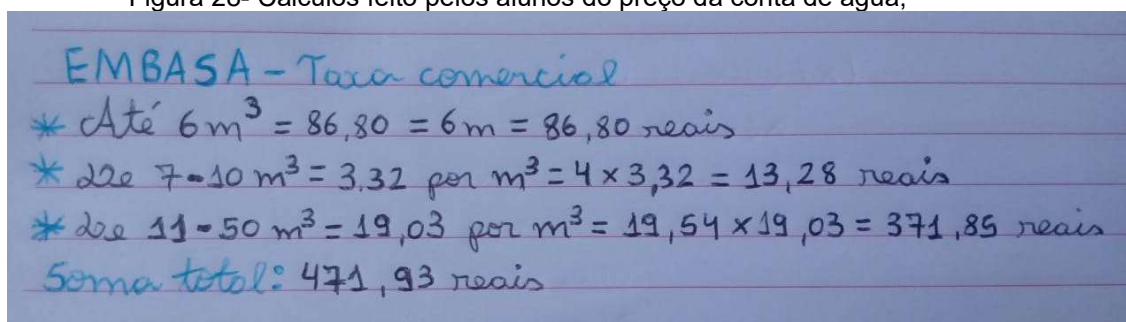 Figura 28- Cálculos feito pelos alunos do preço da conta de água;
EMBASA - Taxa comercial
* Até 6 m³ = 86,80 = 6m = 86,80 reais
* De 7-10 m³ = 3.32 por m³ = 4 x 3,32 = 13,28 reais
* De 11-50 m³ = 19,03 por m³ = 19,54 x 19,03 = 371,85 reais
Soma total: 471,93 reais